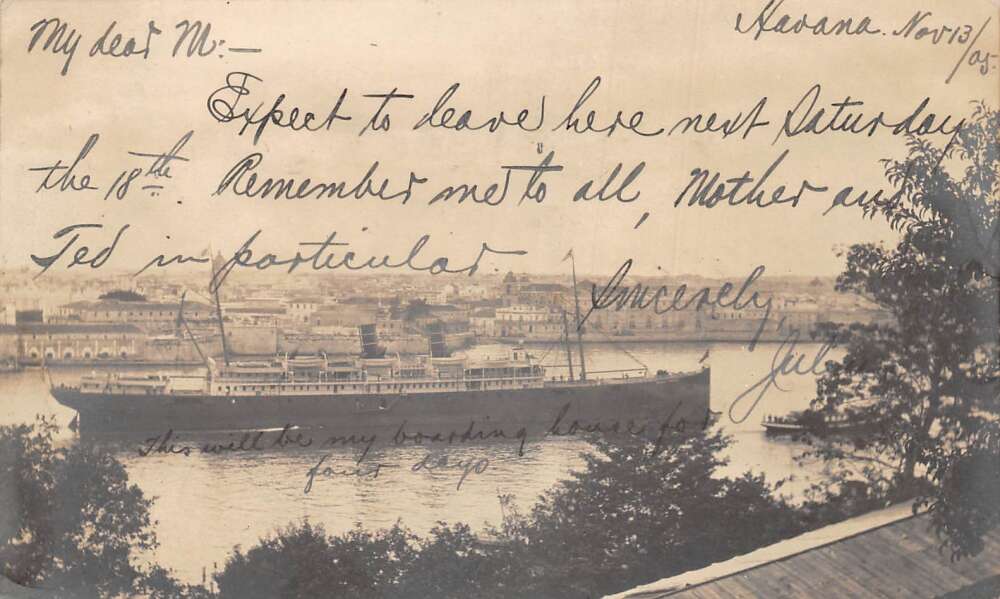 Havana. Nov 13/05.
My dear M:—
Expect to leave here next Saturday
the 18th Remember me to all, Mother and
Ted in particular
Sincerely,
This will be my boarding house for
four days